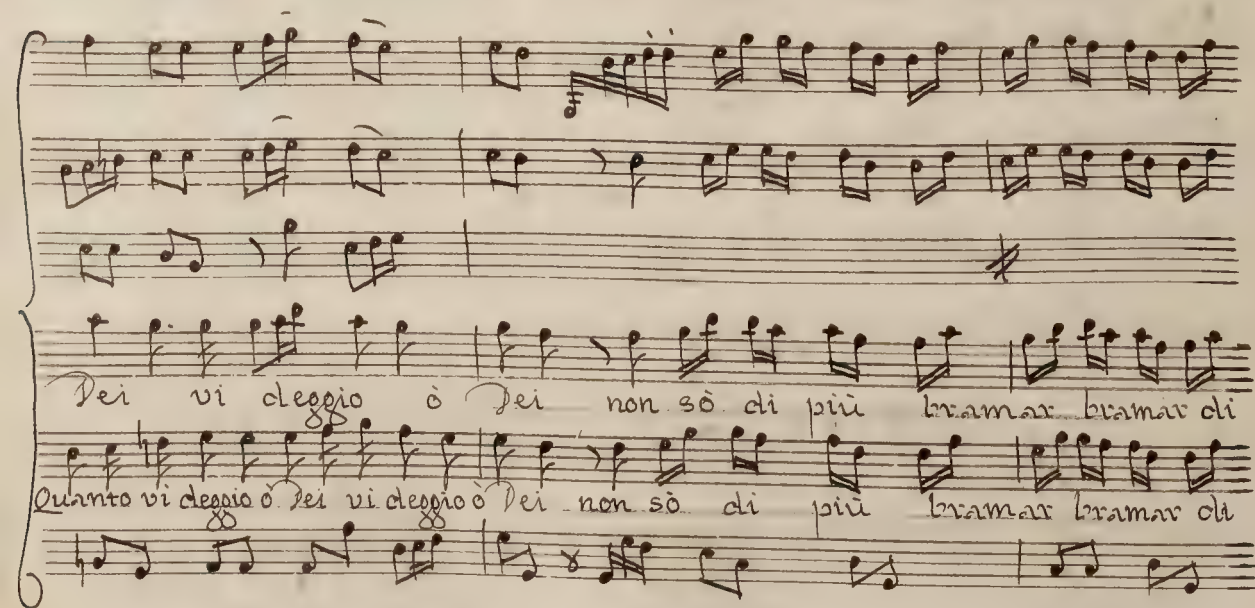 Dei vi deggio ò Dei non sò di più bramar bramar di
Quanto vi deggio ò Dei vi deggio ò Dei non sò di più bramar bramar di